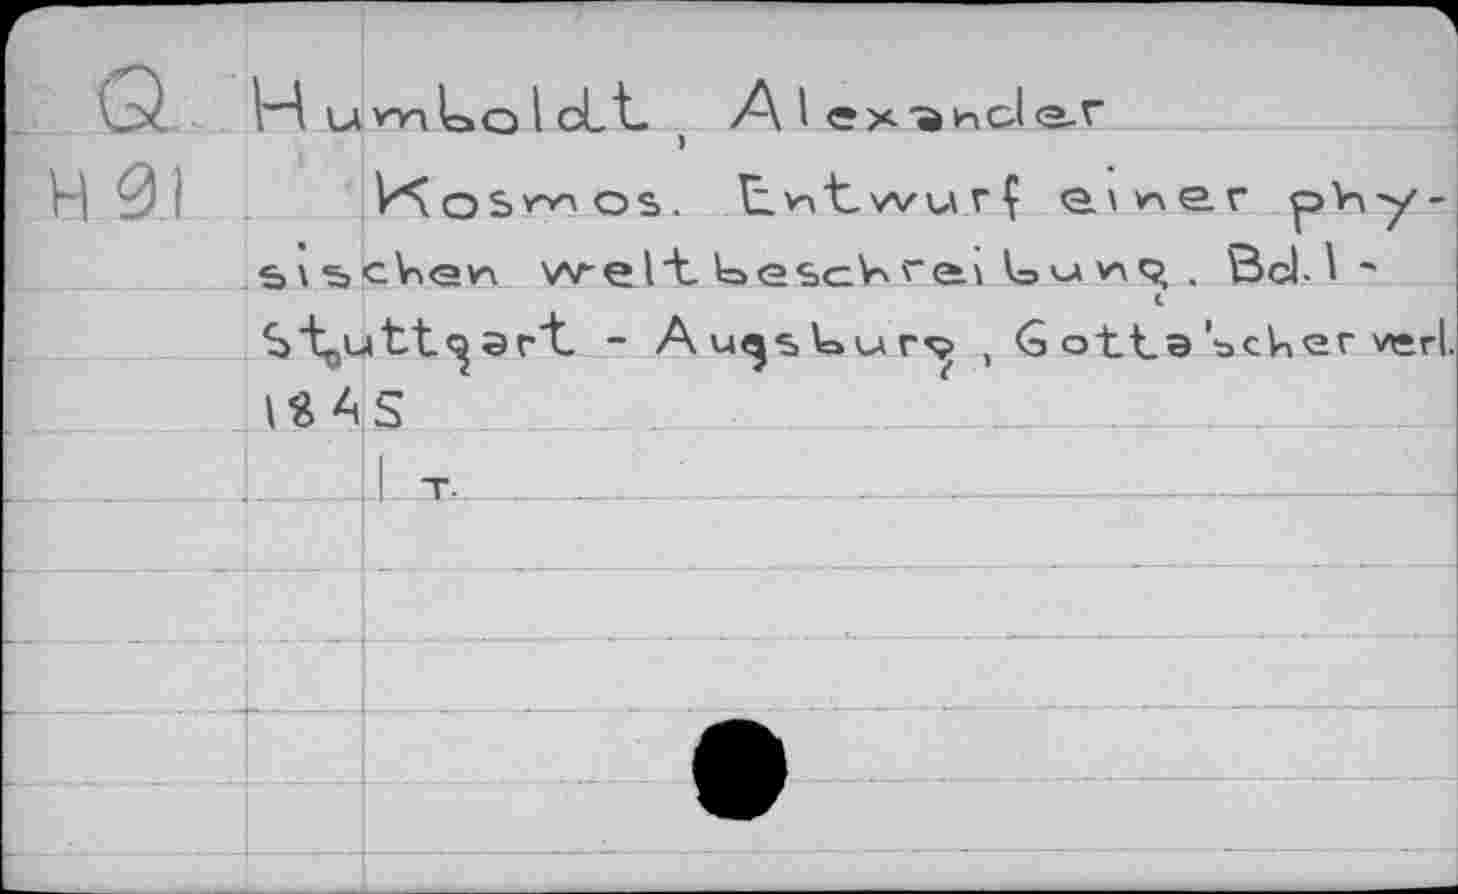 Q Humboldt, Alexander
H 91 Kosmos. Entwurf einer phy-
sischen weltbeschreibung. Bd. 1 -
Stuttgart - Augsburg, Gotta'scher verl.
1845
1 T.